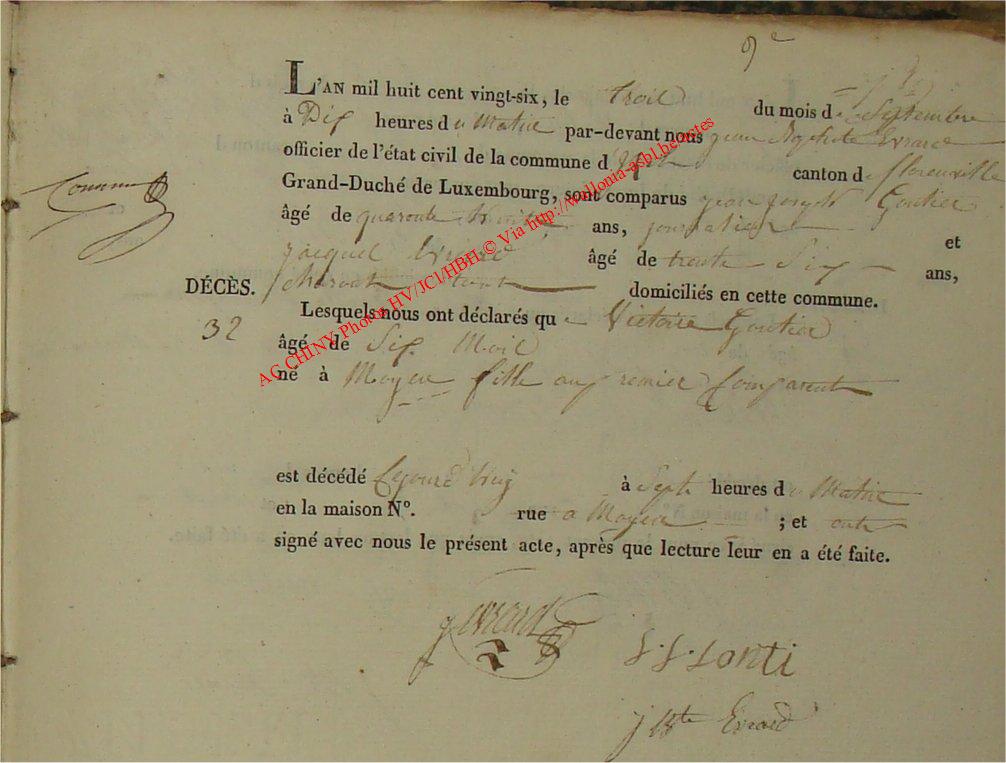 9e
L'AN mil huit cent vingt-six, le trois du mois de Septembre
à Dix heures du Matin par-devant nous jean Baptiste Evrard
officier de l'état civil de la commune d canton de florenville
Grand-Duché de Luxembourg, sont comparus jean joseph Gontier
âgé de quarante ans, journalier et
jacques Evrard âgé de trente Six ans,
domiciliés en cette commune.
DÉCÈS.
32
Lesquels nous ont déclarés que Victoire Gontier
âgé de Six Mois
né à Moyen fille au premier Comparent
est décédé à Sept heures du Matin
en la maison N°. rue a Moyen ; et ont
signé avec nous le présent acte, après que lecture leur en a été faite.
j Evrard
j Bte Evrard
AG CHINY Photos HV/JCI/HBH © Via http://walloma-asbl.be/actes